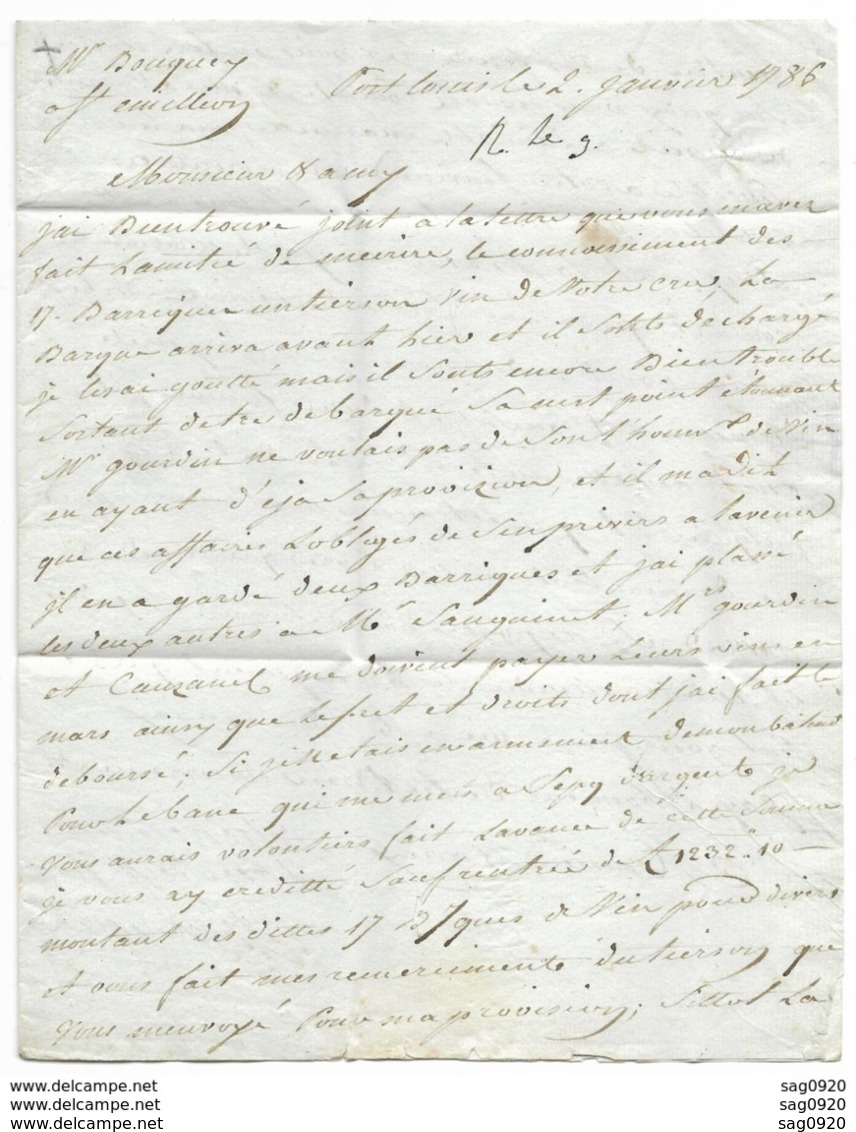 Mr Bouquey
a St emillion
Port louis le 2. janvier 1786
R. le 9.
Monsieur & amy
jai Bien trouvé joint a la lettre que vous mavez
fait Lamitié de mecrire, le connoissement des
17. Barriques un tierson vin de Votre cru; La
Barque arriva avant hier et il sonts dechargé
je les ai goutté mais il sonts encore Bien trouble
sortant detre debarqué sa nest point étonnant
Mr gourdin ne voulais pas de son thonn.u de vin
en ayant d'eja sa provizion, et il ma dit
que ces affaires Lobligés de sen privers a lavenir
jl en a gardé deux Barriques et jai plassé
les deux autres a Mr Sanguinet, Mrs gourdin
et Cauzanel me doivent payer leurs vins en
mars ainsy que le fret et droits dont jai fait le
deboursé; si je netais en armement demon
Pour qui me mes a sepq dargent je
vous aurais volontiers fait Lavance de cette somme
je vous ay creditté sauf rentrée de ₶ 1232." 10
montant des dittes 17 B/ques de vin pour divers
et vous fait mes remerciments du tierson que
vous menvoyé Pour ma provision; sittot La
sag0920
sag0920
sag0920
www.delcampe.net
www.delcampe.net
www.delcampe.net